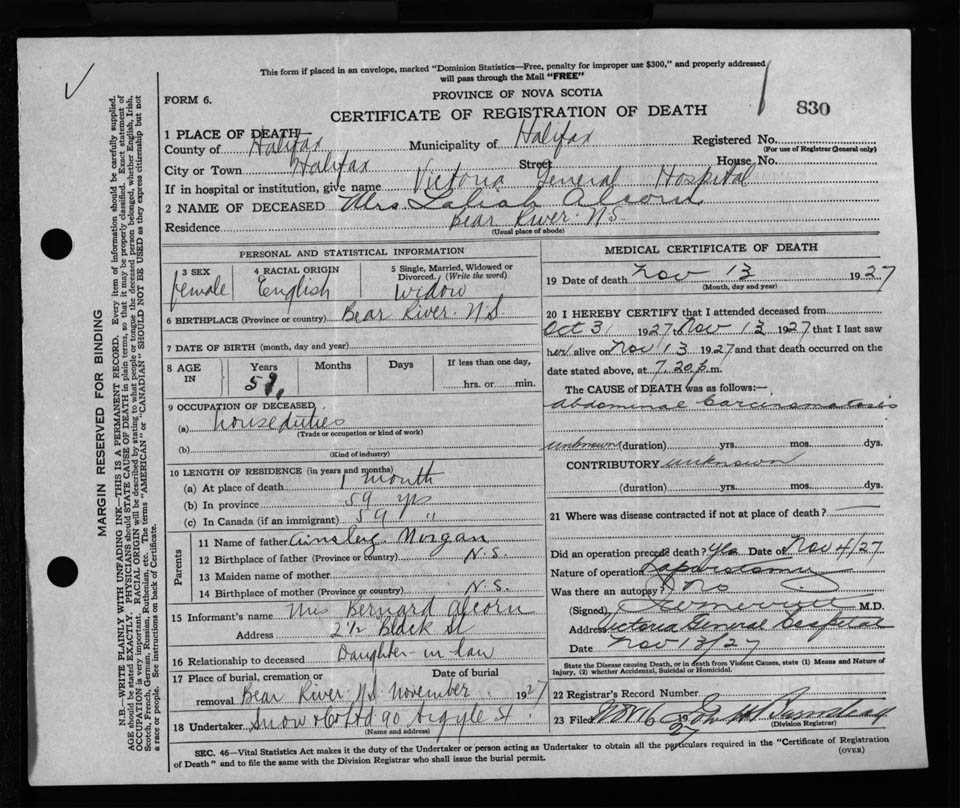 This form if placed in an envelope, marked "Dominion Statistics—Free, penalty for improper use $300," and properly addressed
will pass through the Mail "FREE"
PROVINCE OF NOVA SCOTIA
FORM 6.
CERTIFICATE OF REGISTRATION OF DEATH
830
1 PLACE OF DEATH
County of Halifax Municipality of Halifax Registered No.
(For use of Registrar General only)
City or Town Halifax Street House No.
If in hospital or institution, give name Victoria General Hospital
2 NAME OF DECEASED Mrs Alcorn
Residence Bear River N.S.
(Usual place of abode)
PERSONAL AND STATISTICAL INFORMATION
3 SEX female
4 RACIAL ORIGIN English
5 Single, Married, Widowed or Divorced, (Write the word) Widow
6 BIRTHPLACE (Province or country) Bear River. N.S.
7 DATE OF BIRTH (month, day and year)
8 AGE IN Years 59 Months Days If less than one day, hrs. or min.
9 OCCUPATION OF DECEASED
(a) house duties
(Trade or occupation or kind of work)
(b)
(Kind of industry)
10 LENGTH OF RESIDENCE (in years and months)
(a) At place of death 1 month
(b) In province 59 yrs
(c) In Canada (if an immigrant) 59 "
Parents
11 Name of father Morgan
12 Birthplace of father (Province or country) N.S.
13 Maiden name of mother
14 Birthplace of mother (Province or country) N.S.
15 Informant's name Mrs Bernard Alcorn
Address 2½ Black St
16 Relationship to deceased Daughter-in-law
17 Place of burial, cremation or removal Bear River N.S. Date of burial November 1927
18 Undertaker Snow & Co Ltd 90 Argyle St.
(Name and address)
MEDICAL CERTIFICATE OF DEATH
19 Date of death Nov 13 1927
(Month, day and year)
20 I HEREBY CERTIFY that I attended deceased from
Oct 31 1927 to Nov 13 1927 that I last saw
her alive on Nov 13 1927 and that death occurred on the
date stated above, at 7.20 p.m.
The CAUSE of DEATH was as follows:—
Abdominal Carcinomatosis
unknown (duration) yrs. mos. dys.
CONTRIBUTORY unknown
(duration) yrs. mos. dys.
21 Where was disease contracted if not at place of death? —
Did an operation precede death? Yes Date of Nov 4/27
Nature of operation Laparotomy
Was there an autopsy? no
(Signed) M.D.
Address Victoria General Hospital
Date Nov 13/27
State the Disease causing Death, or in death from Violent Causes, state (1) Means and Nature of
Injury, (2) whether Accidental, Suicidal or Homicidal.
22 Registrar's Record Number
23 Filed Nov 16 1927
(Division Registrar)
SEC. 46—Vital Statistics Act makes it the duty of the Undertaker or person acting as Undertaker to obtain all the particulars required in the "Certificate of Registration
of Death" and to file the same with the Division Registrar who shall issue the burial permit.
(OVER)
MARGIN RESERVED FOR BINDING
N.B.—WRITE PLAINLY WITH UNFADING INK—THIS IS A PERMANENT RECORD. Every item of information should be carefully supplied.
AGE should be stated EXACTLY. PHYSICIANS should STATE CAUSE OF DEATH in plain terms, so that it may be properly classified. Exact statement of
OCCUPATION is very important. RACIAL ORIGIN will be described by stating to what people or tongue the deceased person belonged, whether English, Irish,
Scotch, French, German, Russian, Ruthenian, etc. The terms "AMERICAN" or "CANADIAN" SHOULD NOT BE USED as they express citizenship but not
a race or people. See instructions on back of Certificate.